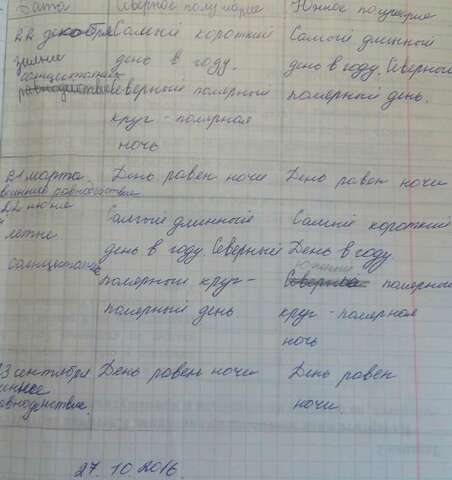 Дата Северное полушарие Южное полушарие
22 декабря Самый короткий Самый длинный
зимнее день в году. день в году. Северный
солнцестояние
равноденствие Северный полярный полярный день.
круг - полярная
ночь
21 марта. День равен ночи День равен ночи
весеннее равноденствие
22 июня Самый длинный Самый короткий
летнее день в году. Северный День в году.
солнцестояние полярный круг - Северные полярный
полярный день круг - полярная
ночь
23 сентября День равен ночи День равен
равноденствие. ночи.
27. 10. 2016.